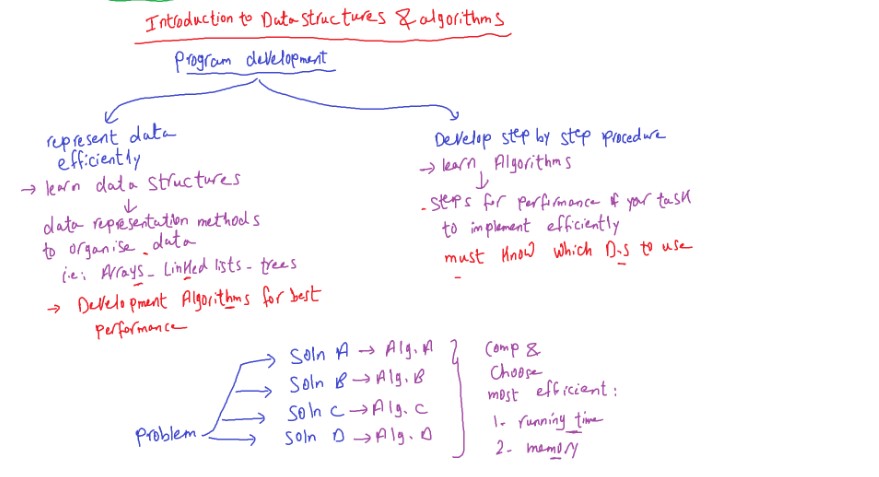 Introduction to Data structures & algorithms
Program development
represent data
efficiently
→ learn data structures
data representation methods
to organise data
i.e: Arrays - Linked lists - trees
→ Development Algorithms for best
performance
Develop step by step procedure
→ learn Algorithms
- steps for performance of your task
to implement efficiently
must know which D.s to use
Problem
Soln A → Alg. A
Soln B → Alg. B
Soln C → Alg. C
Soln D → Alg. D
Comp &
Choose
most efficient:
1- running time
2- memory